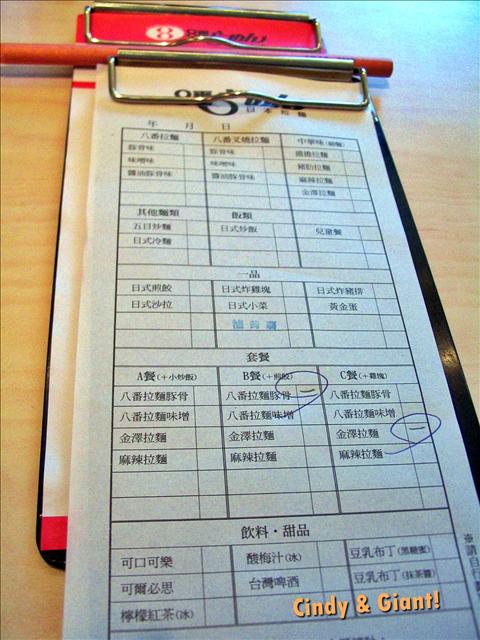 8
日本拉麵
年 月 日
八番拉麵 八番叉燒拉麵 中華味(細麵)
豚骨味 豚骨味 擔擔拉麵
味噌味 味噌味 豬肋拉麵
醬油豚骨味 醬油豚骨味 麻辣拉麵
金澤拉麵
其他麵類 飯類
五目炒麵 日式炒飯 兒童餐
日式冷麵
一品
日式煎餃 日式炸雞塊 日式炸豬排
日式沙拉 日式小菜 黃金蛋
套餐
A餐(+小炒飯) B餐(+煎餃) C餐(+雞塊)
八番拉麵豚骨 八番拉麵豚骨 一 八番拉麵豚骨
八番拉麵味增 八番拉麵味增 八番拉麵味增
金澤拉麵 金澤拉麵 金澤拉麵 一
麻辣拉麵 麻辣拉麵 麻辣拉麵
飲料·甜品
可口可樂 酸梅汁(冰) 豆乳布丁(黑糖蜜)
可爾必思 台灣啤酒 豆乳布丁(抹茶醬)
檸檬紅茶(冰)
※請自行
Cindy & Giant!